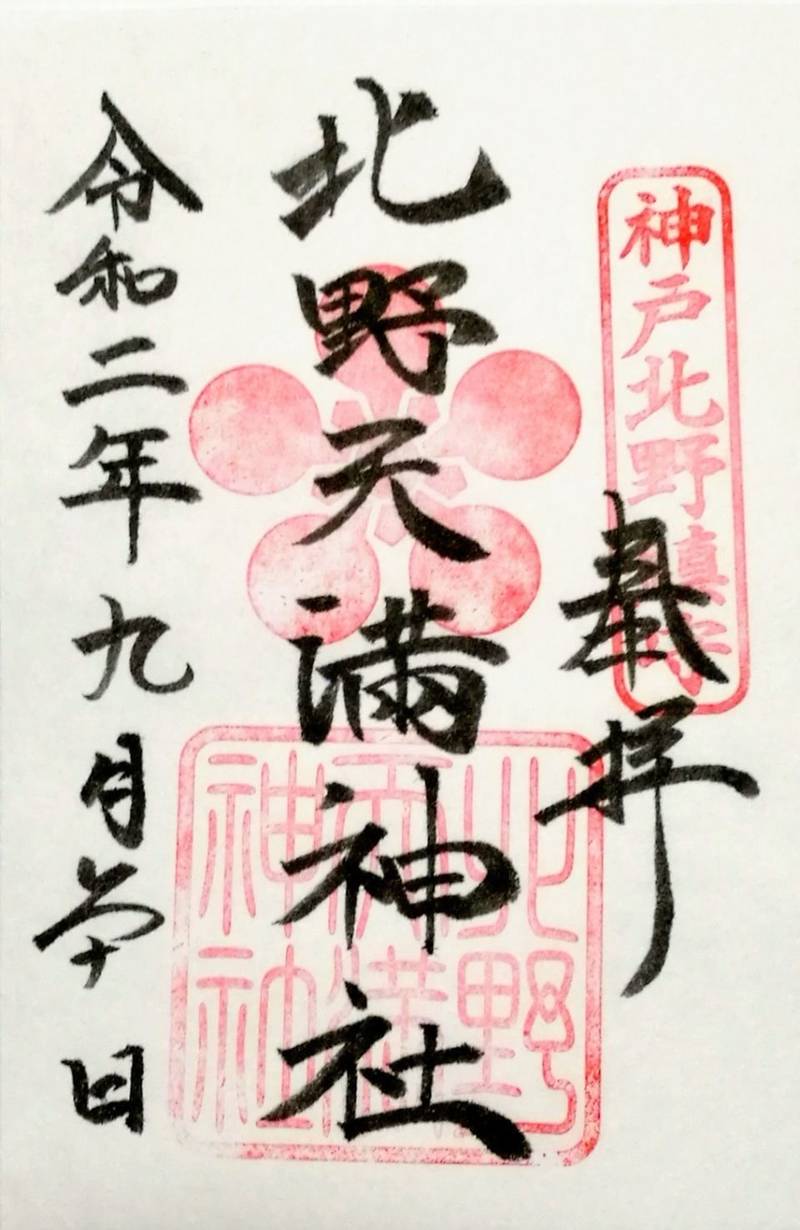 神戸北野鎮守
奉拝
北野天満神社
北野
天満
神社
令和二年九月日